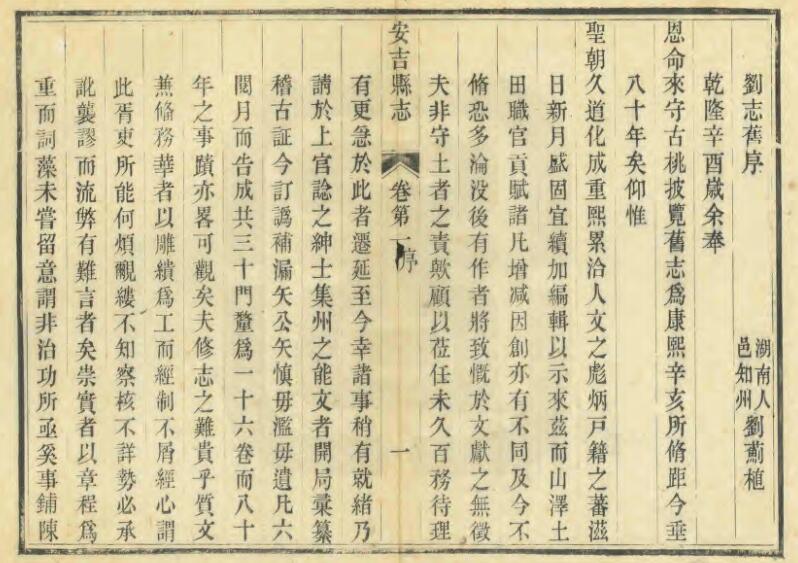 劉志舊序
湖南人
邑知州
劉薊植
乾隆辛酉歲余奉
恩命來守古桃披覽舊志爲康熙辛亥所脩距今垂
八十年矣仰惟
聖朝久道化成重熙累洽人文之彪炳戸籍之蕃滋
日新月盛固宜續加編輯以示來茲而山澤土
田職官貢賦諸凡增减因創亦有不同及今不
脩恐多淪没後有作者將致慨於文獻之無徵
夫非守土者之責歟顧以莅任未久百務待理
安吉縣志
卷第一
序
一
有更急於此者遷延至今幸諸事稍有就緒乃
請於上官諗之紳士集州之能文者開局彙纂
稽古証今訂譌補漏矢公矢愼毋濫毋遺凡六
閱月而告成共三十門釐爲一十六卷而八十
年之事蹟亦畧可觀矣夫修志之難貴乎質文
兼脩務華者以雕繢爲工而經制不屑經心謂
此胥吏所能何煩覼縷不知察核不詳勢必承
訛襲謬而流弊有難言者矣崇實者以章程爲
重而詞藻未嘗留意謂非治功所亟奚事鋪陳